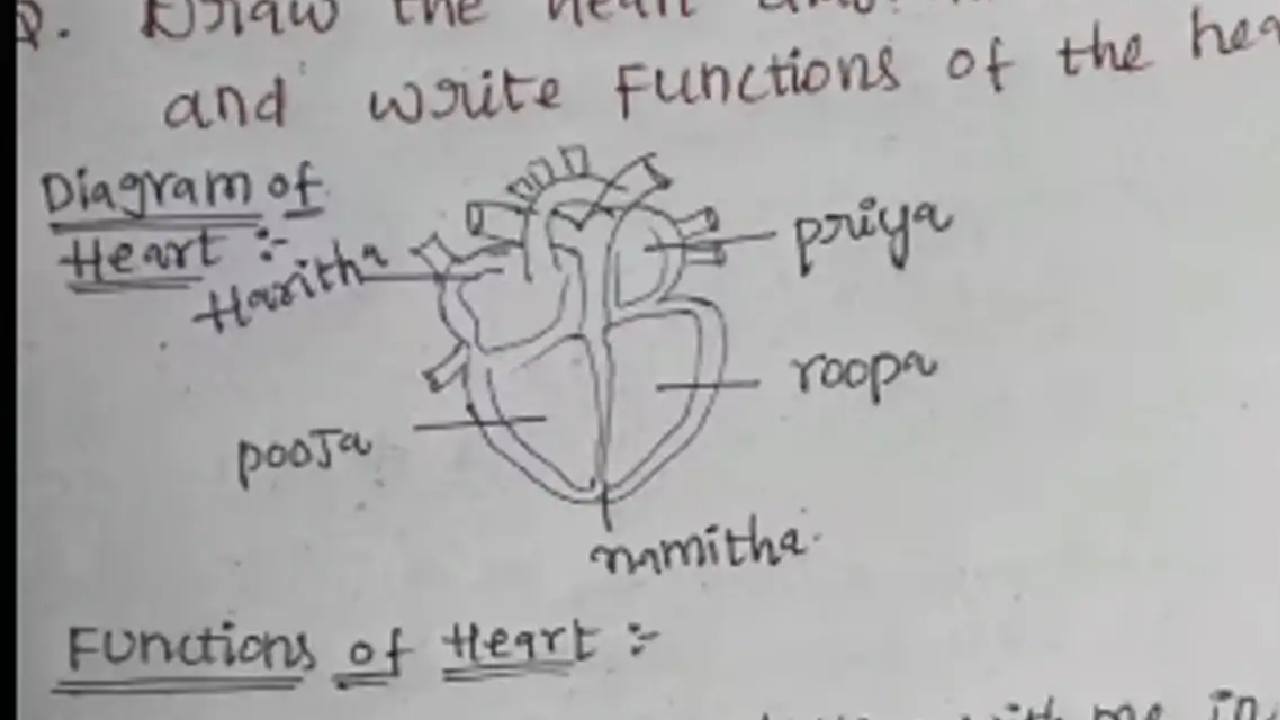 Q. Draw the heart
and write Functions of the
Diagram of
Heart :-
Haritha
priya
roopa
pooja
namitha.
Functions of Heart :-
with me in